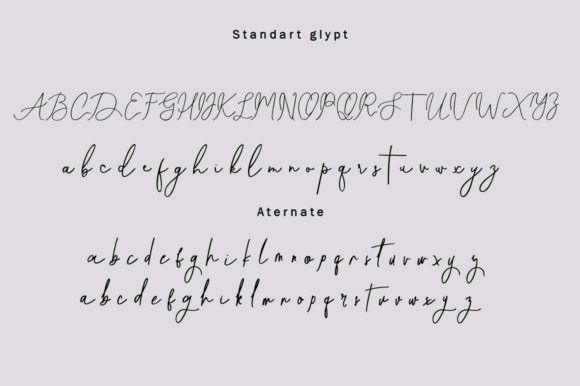 Standart glypt
ABCDEFGHIJKLMNOPQRSTUVWXYZ
abcdefghiklmnopqrstuvwxyz
Aternate
abcdefghiklmnopqrstuvwxyyz
abcdefghiklmnopqrstuvwxyz